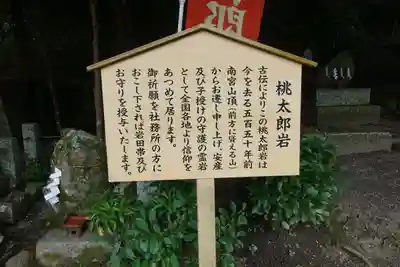 郎
桃太郎岩
古伝によりこの桃太郎岩は
今を去る五百五十年前
南宮山頂(前方に聳える山)
からお遷し申し上げ、安産
及び子授けの守護の霊岩
として全国各地より信仰を
あつめて居ります。
御祈願を社務所の方に
おこし下されば岩田帯及び
お守りを授与いたします。